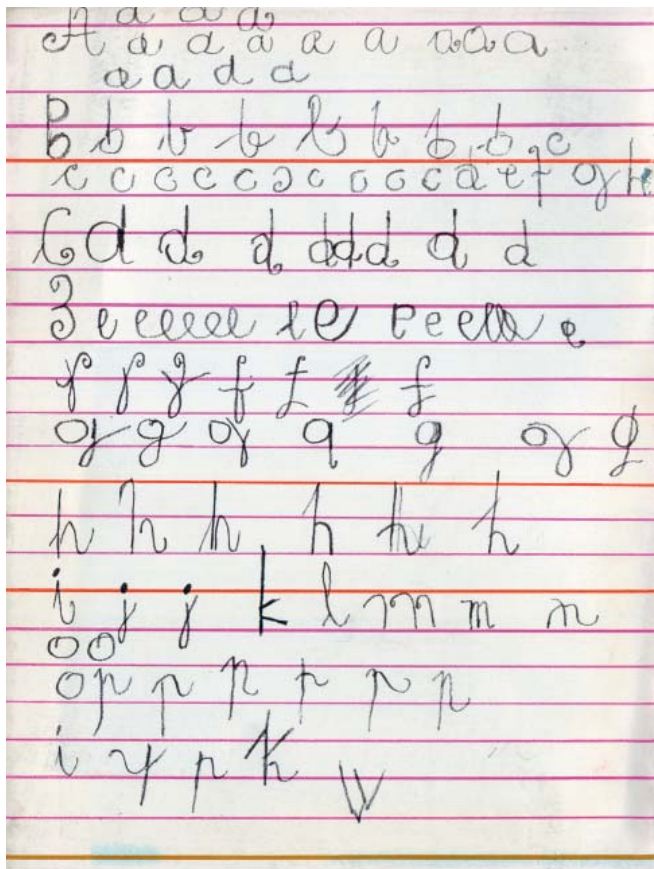 a a a
A a a a a a a a a
a a d d
B b b b b b b b c
c c c c c c c c c c d e f g h
C d d d ddd d d
3 e eeeeee l e e e e e e
f f f f f f
g g g q g g g
h h h h h h
i j j k l m m n
o o
o p p p p p p
i y p k w